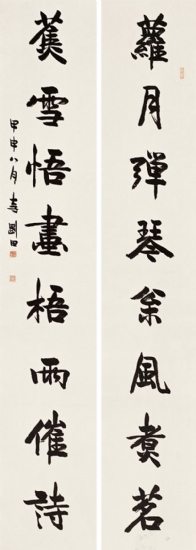 蘿月彈琴爺風煑茗
蕉雪悟畫梧雨催詩
甲申八月